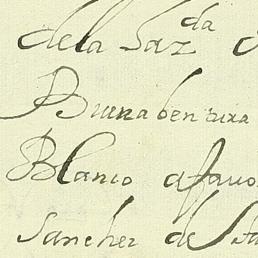 de la Haz.da
Buenabentura
Blanco afavo
Sanchez de Sta